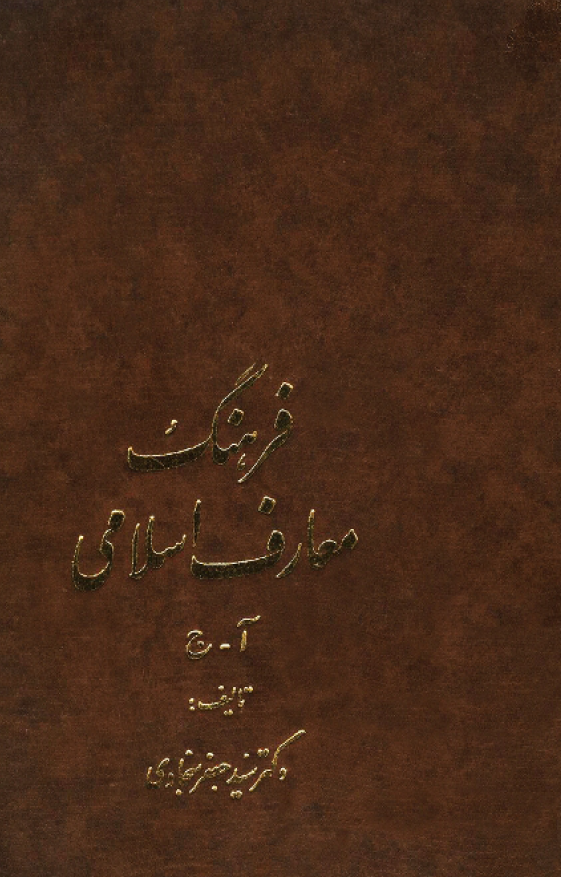 فرهنگ
معارف اسلامی
آ - ج
تالیف:
دکتر سید جعفر سجادی